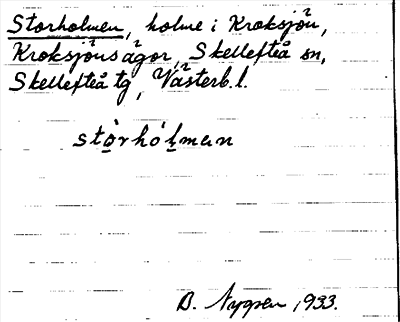 Storholmen, holme i Kroksjön,
Kroksjöns ägor, Skellefteå sn,
Skellefteå tg, Västerb. l.
stòrhólman
B. Nygren, 1933.